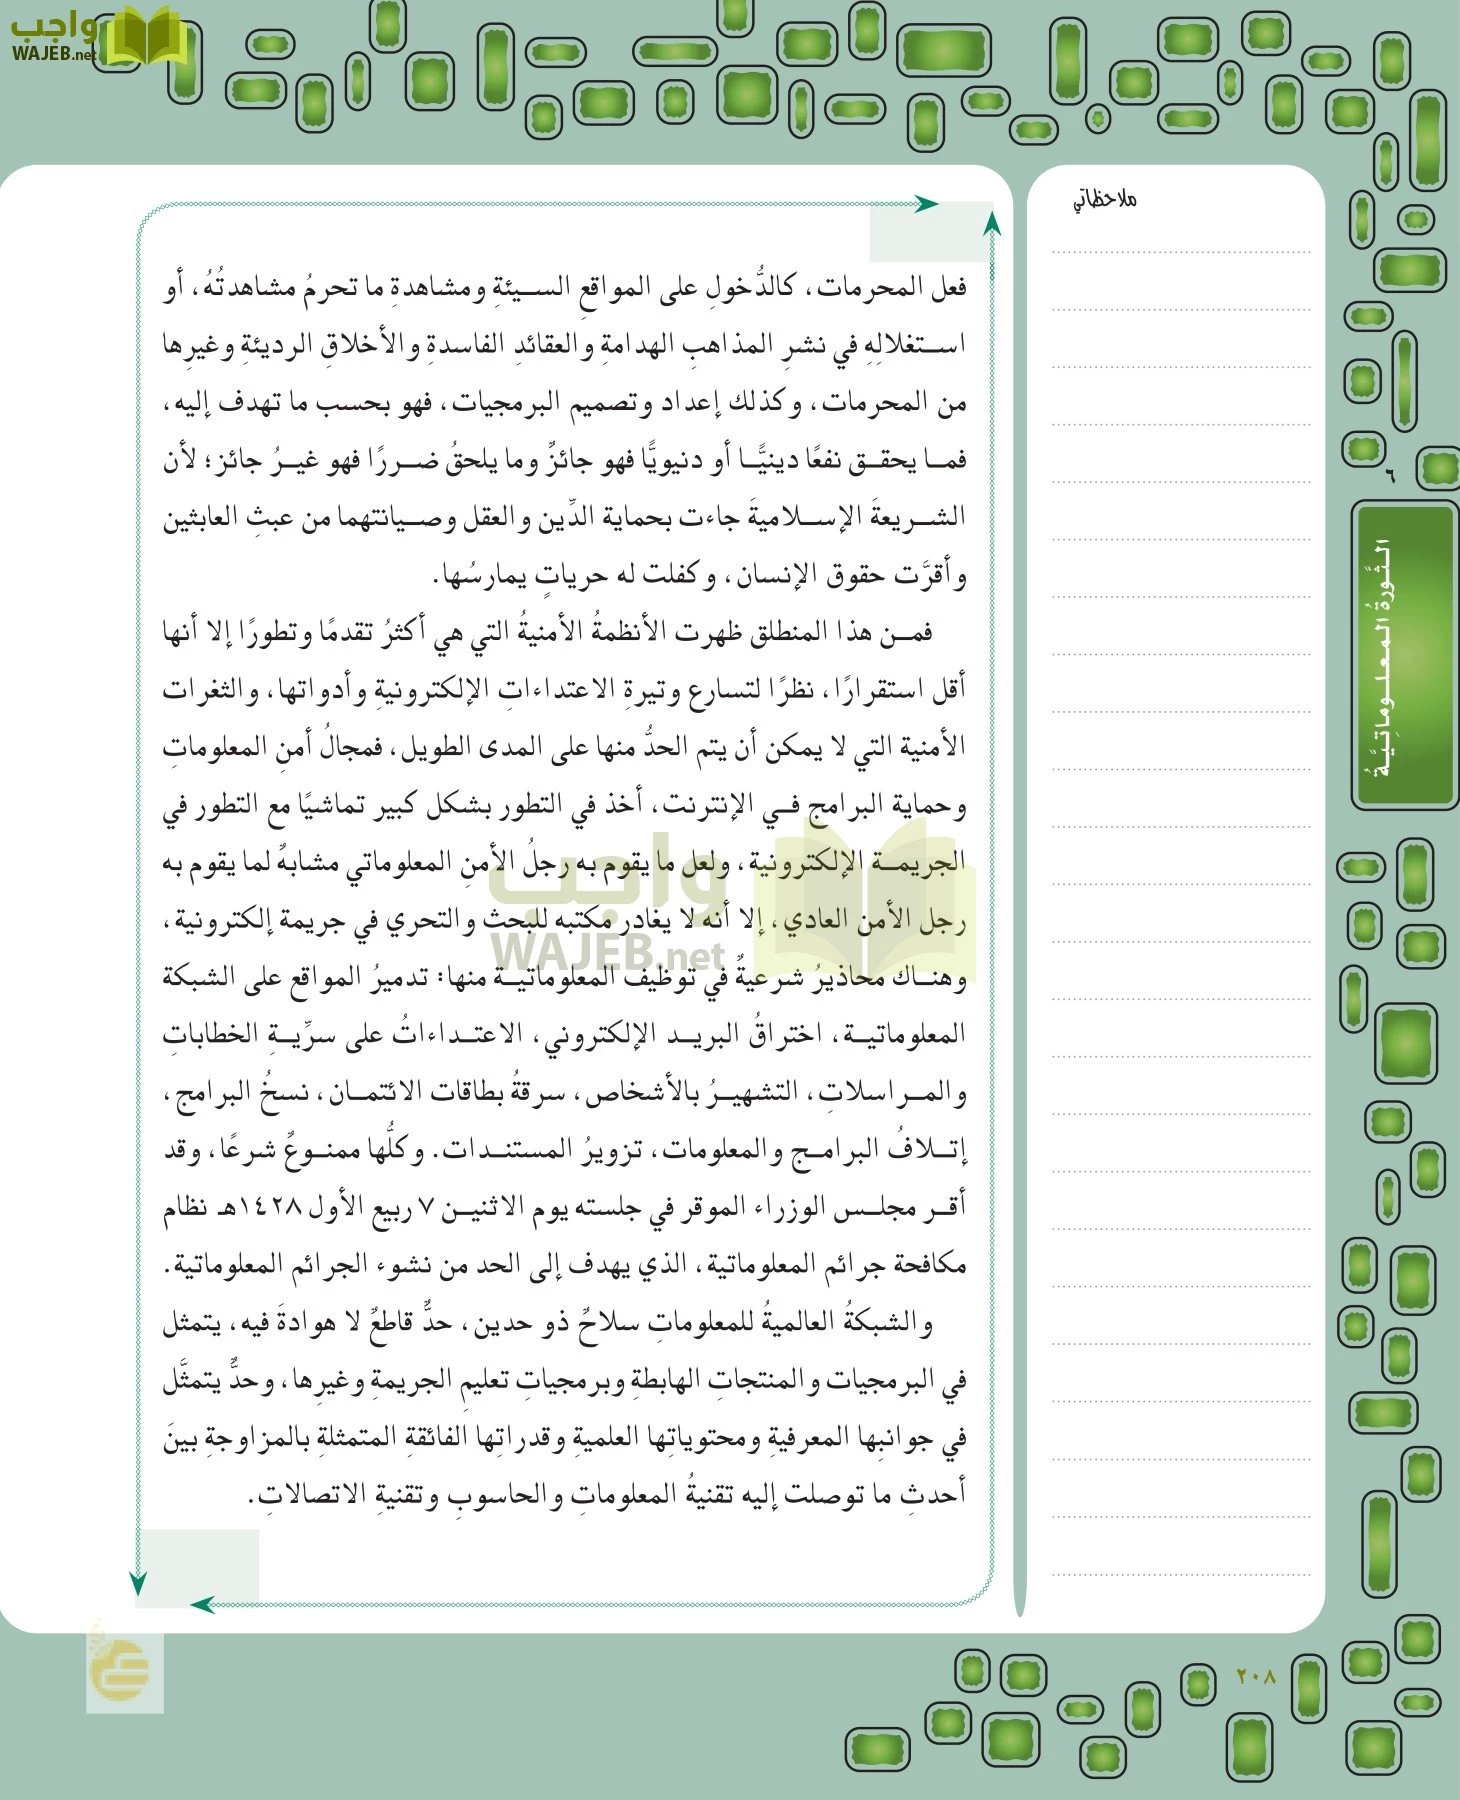 واجب
WAJEB.net
ملاحظاتي
فعل المحرمات، كالدُّخولِ على المواقعِ السيئةِ ومشاهدةِ ما تحرمُ مشاهدتُهُ، أو
استغلالِهِ في نشرِ المذاهبِ الهدامةِ والعقائدِ الفاسدةِ والأخلاقِ الرديئةِ وغيرِها
من المحرمات، وكذلك إعداد وتصميم البرمجيات، فهو بحسب ما تهدف إليه،
فما يحقق نفعًا دينيًّا أو دنيويًّا فهو جائزٌ وما يلحقُ ضررًا فهو غيرُ جائز؛ لأن
الشريعةَ الإسلاميةَ جاءت بحماية الدِّين والعقل وصيانتهما من عبثِ العابثين
وأقرَّت حقوق الإنسان، وكفلت له حرياتٍ يمارسُها.
فمن هذا المنطلق ظهرت الأنظمةُ الأمنيةُ التي هي أكثرُ تقدمًا وتطورًا إلا أنها
أقل استقرارًا، نظرًا لتسارع وتيرةِ الاعتداءاتِ الإلكترونيةِ وأدواتها، والثغرات
الأمنية التي لا يمكن أن يتم الحدُّ منها على المدى الطويل، فمجالُ أمنِ المعلوماتِ
وحماية البرامج في الإنترنت، أخذ في التطور بشكل كبير تماشيًا مع التطور في
الجريمة الإلكترونية، ولعل ما يقوم به رجلُ الأمنِ المعلوماتي مشابهٌ لما يقوم به
رجل الأمن العادي، إلا أنه لا يغادر مكتبه للبحث والتحري في جريمة إلكترونية،
وهناك محاذيرُ شرعيةٌ في توظيف المعلوماتية منها: تدميرُ المواقع على الشبكة
المعلوماتية، اختراقُ البريد الإلكتروني، الاعتداءاتُ على سرِّيةِ الخطاباتِ
والمراسلاتِ، التشهيرُ بالأشخاص، سرقةُ بطاقات الائتمان، نسخُ البرامج،
إتلافُ البرامج والمعلومات، تزويرُ المستندات. وكلُّها ممنوعٌ شرعًا، وقد
أقر مجلس الوزراء الموقر في جلسته يوم الاثنين ٧ ربيع الأول ١٤٢٨هـ نظام
مكافحة جرائم المعلوماتية، الذي يهدف إلى الحد من نشوء الجرائم المعلوماتية.
والشبكةُ العالميةُ للمعلوماتِ سلاحٌ ذو حدين، حدٌّ قاطعٌ لا هوادةَ فيه، يتمثل
في البرمجيات والمنتجاتِ الهابطةِ وبرمجياتِ تعليمِ الجريمةِ وغيرِها، وحدٌّ يتمثَّل
في جوانبِها المعرفيةِ ومحتوياتِها العلميةِ وقدراتِها الفائقةِ المتمثلةِ بالمزاوجةِ بينَ
أحدثِ ما توصلت إليه تقنيةُ المعلوماتِ والحاسوبِ وتقنيةِ الاتصالاتِ.
واجب
WAJEB.net
٦
الثَّورةُ المعلوماتيَّةُ
٢٠٨